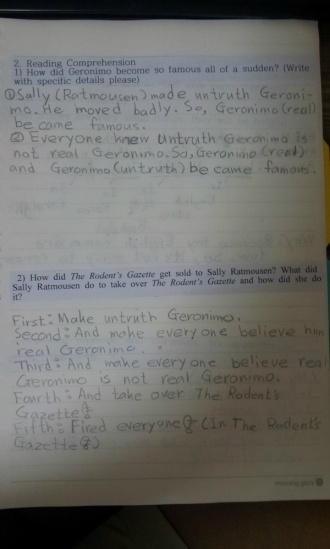 2. Reading Comprehension
1) How did Geronimo become so famous all of a sudden? (Write
with specific details please)
①Sally (Ratmousen) made untruth Geroni-
mo. He moved badly. So, Geronimo (real)
be came famous.
② Everyone knew untruth Geronimo is
not real Geronimo. So, Geronimo (real)
and Geronimo (untruth) be came famous.
2) How did The Rodent's Gazette get sold to Sally Ratmousen? What did
Sally Ratmousen do to take over The Rodent's Gazette and how did she do
it?
First: Make untruth Geronimo.
Second: And make every one believe him
real Geronimo.
Third: And make every one believe real
Geronimo is not real Geronimo.
Fourth: And take over The Rodent's
Gazette
Fifth: Fired everyone (In The Rodent's
Gazette)
morning glory